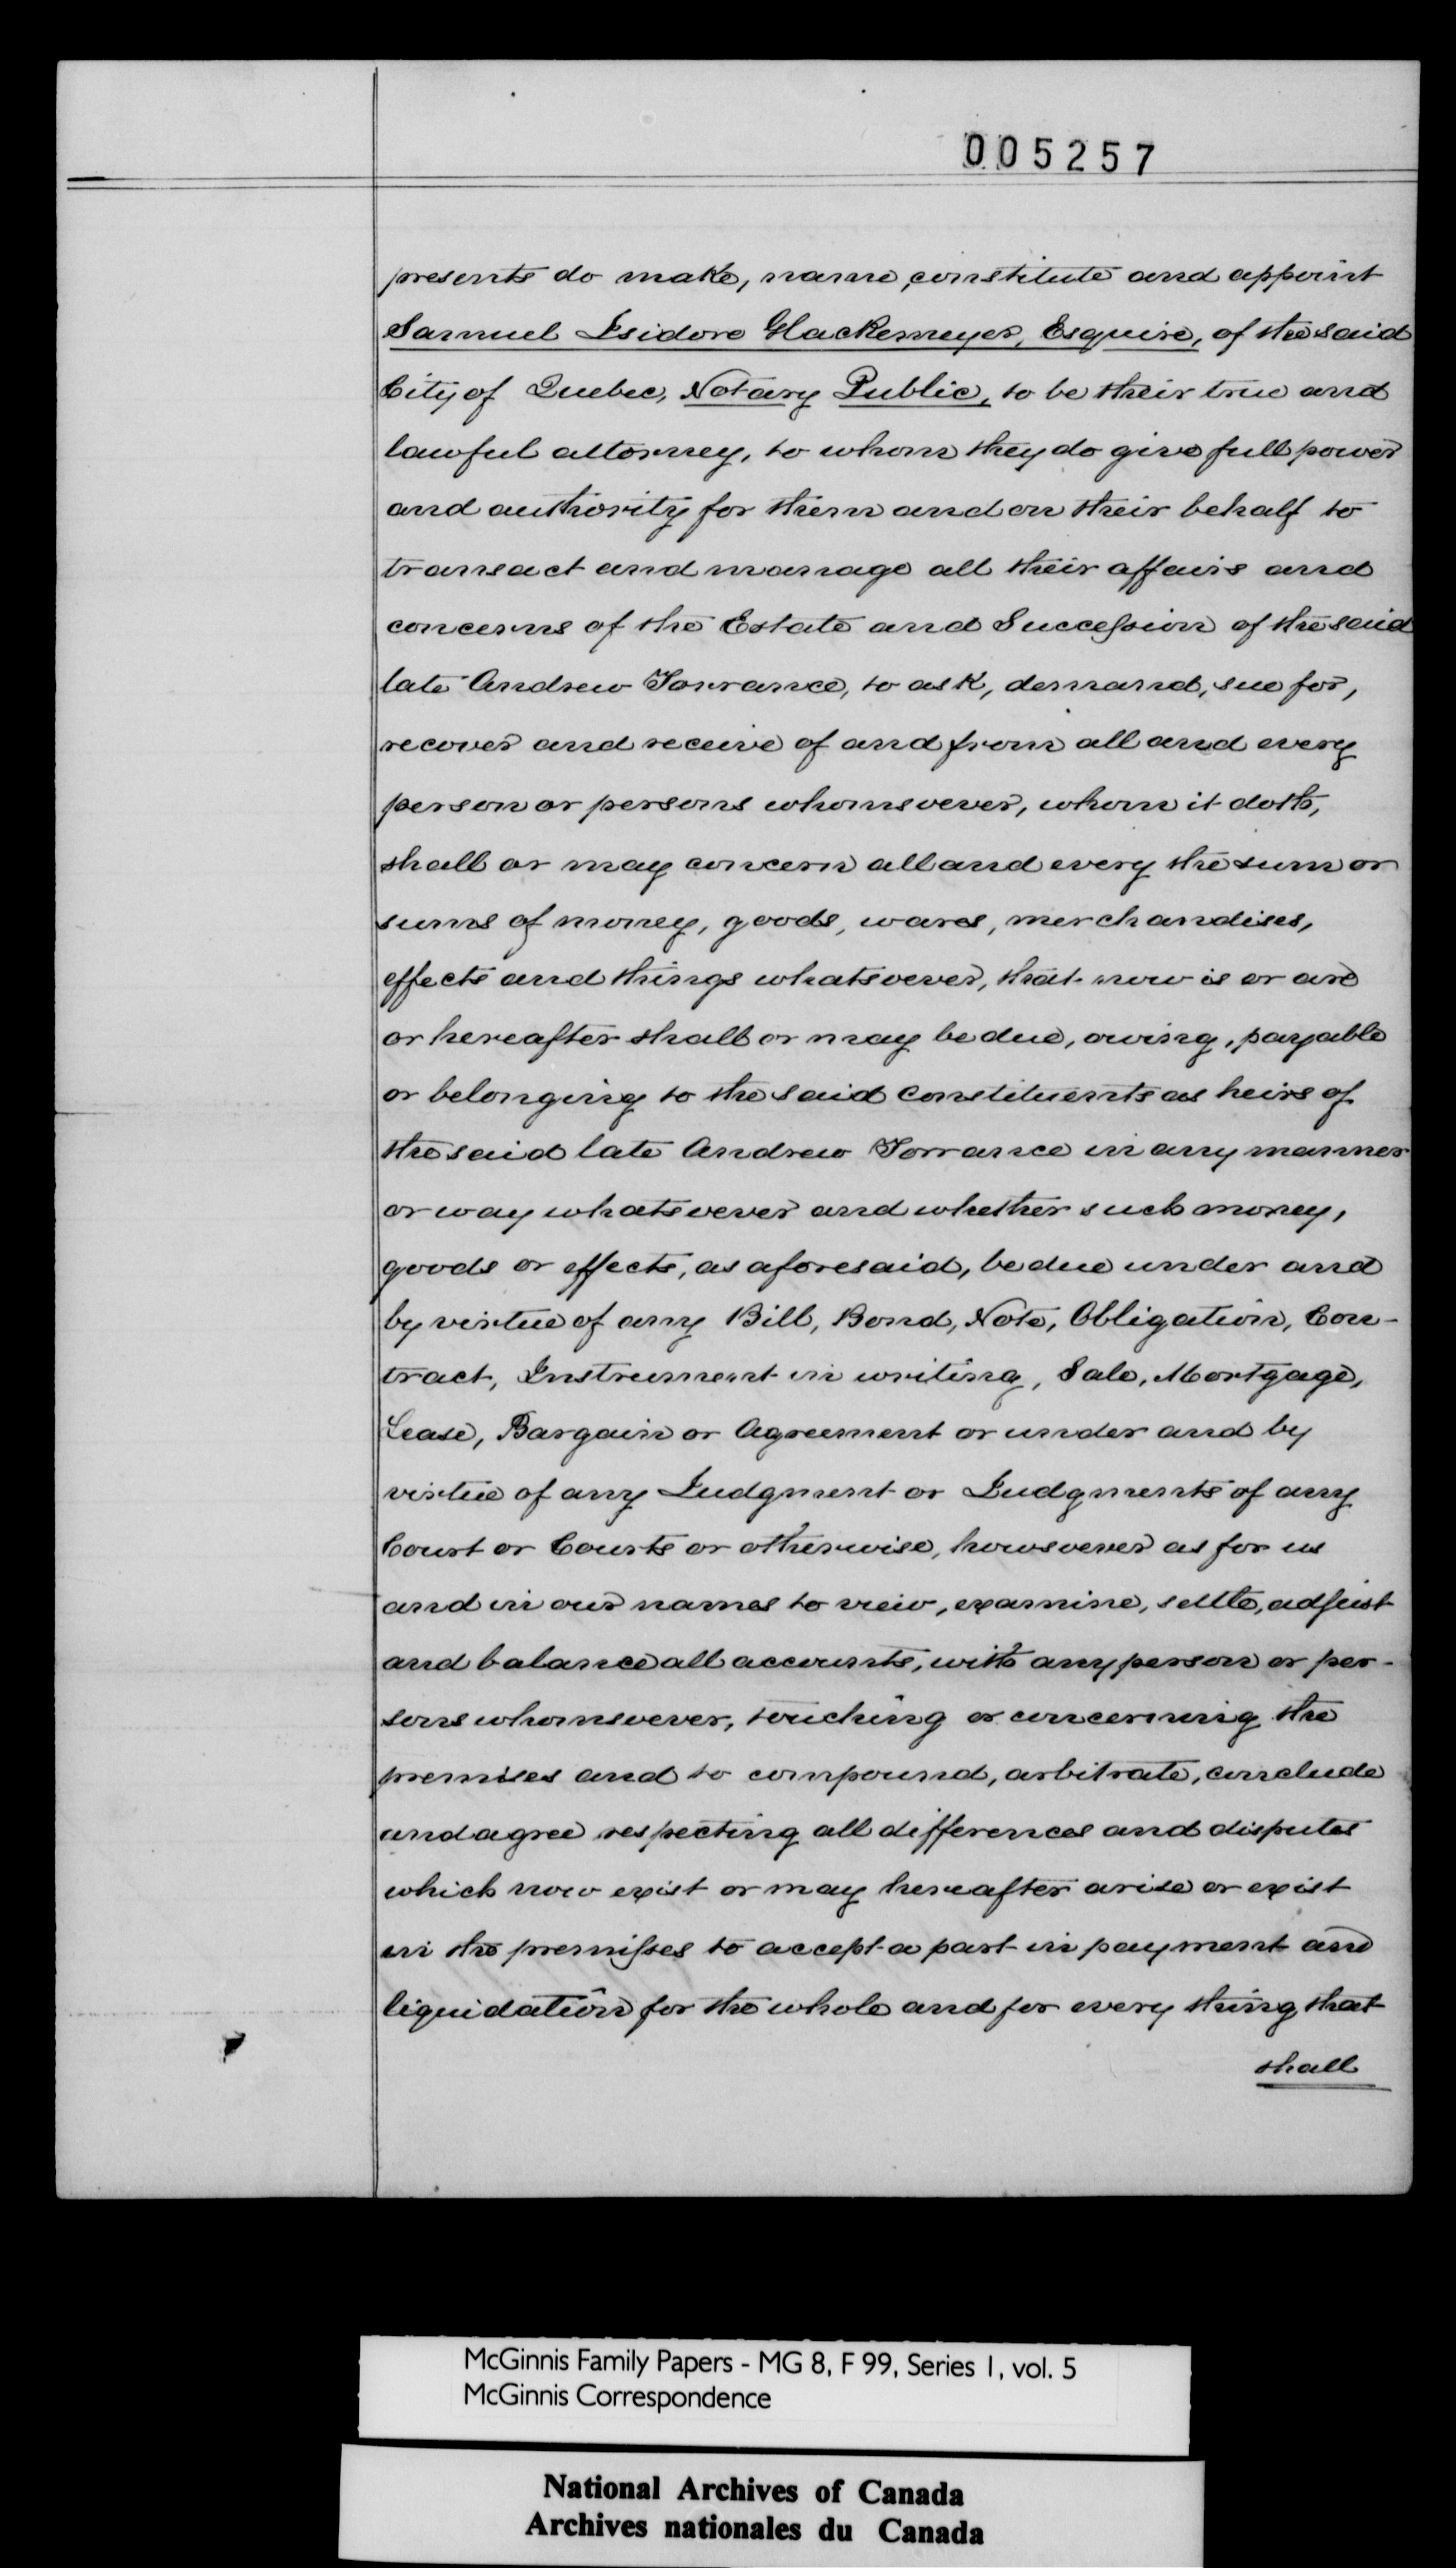 005257
presents do make, name, constitute and appoint
Samuel Isidore Glackemeyer, Esquire, of the said
City of Quebec, Notary Public, to be their true and
lawful attorney, to whom they do give full power
and authority for them and on their behalf to
transact and manage all their affairs and
concerns of the Estate and Succession of the said
late Andrew Torrance, to ask, demand, sue for,
recover and receive of and from all and every
person or persons whomsoever, whom it doth,
shall or may concern all and every the sum or
sums of money, goods, wares, merchandises,
effects and things whatsoever, that now is or are
or hereafter shall or may be due, owing, payable
or belonging to the said Constituents as heirs of
the said late Andrew Torrance in any manner
or way whatsoever and whether such money,
goods or effects, as aforesaid, be due under and
by virtue of any Bill, Bond, Note, Obligation, Con-
tract, Instrument in writing, Sale, Mortgage,
Lease, Bargain or Agreement or under and by
virtue of any Judgment or Judgments of any
Court or Courts or otherwise, howsoever as for us
and in our names to view, examine, settle, adjust
and balance all accounts, with any person or per-
sons whomsoever, touching or concerning the
premises and to compound, arbitrate, conclude
and agree respecting all differences and disputes
which now exist or may hereafter arise or exist
in the premisses to accept a part in payment and
liquidation for the whole and for every thing that
shall
McGinnis Family Papers - MG 8, F 99, Series 1, vol. 5
McGinnis Correspondence
National Archives of Canada
Archives nationales du Canada